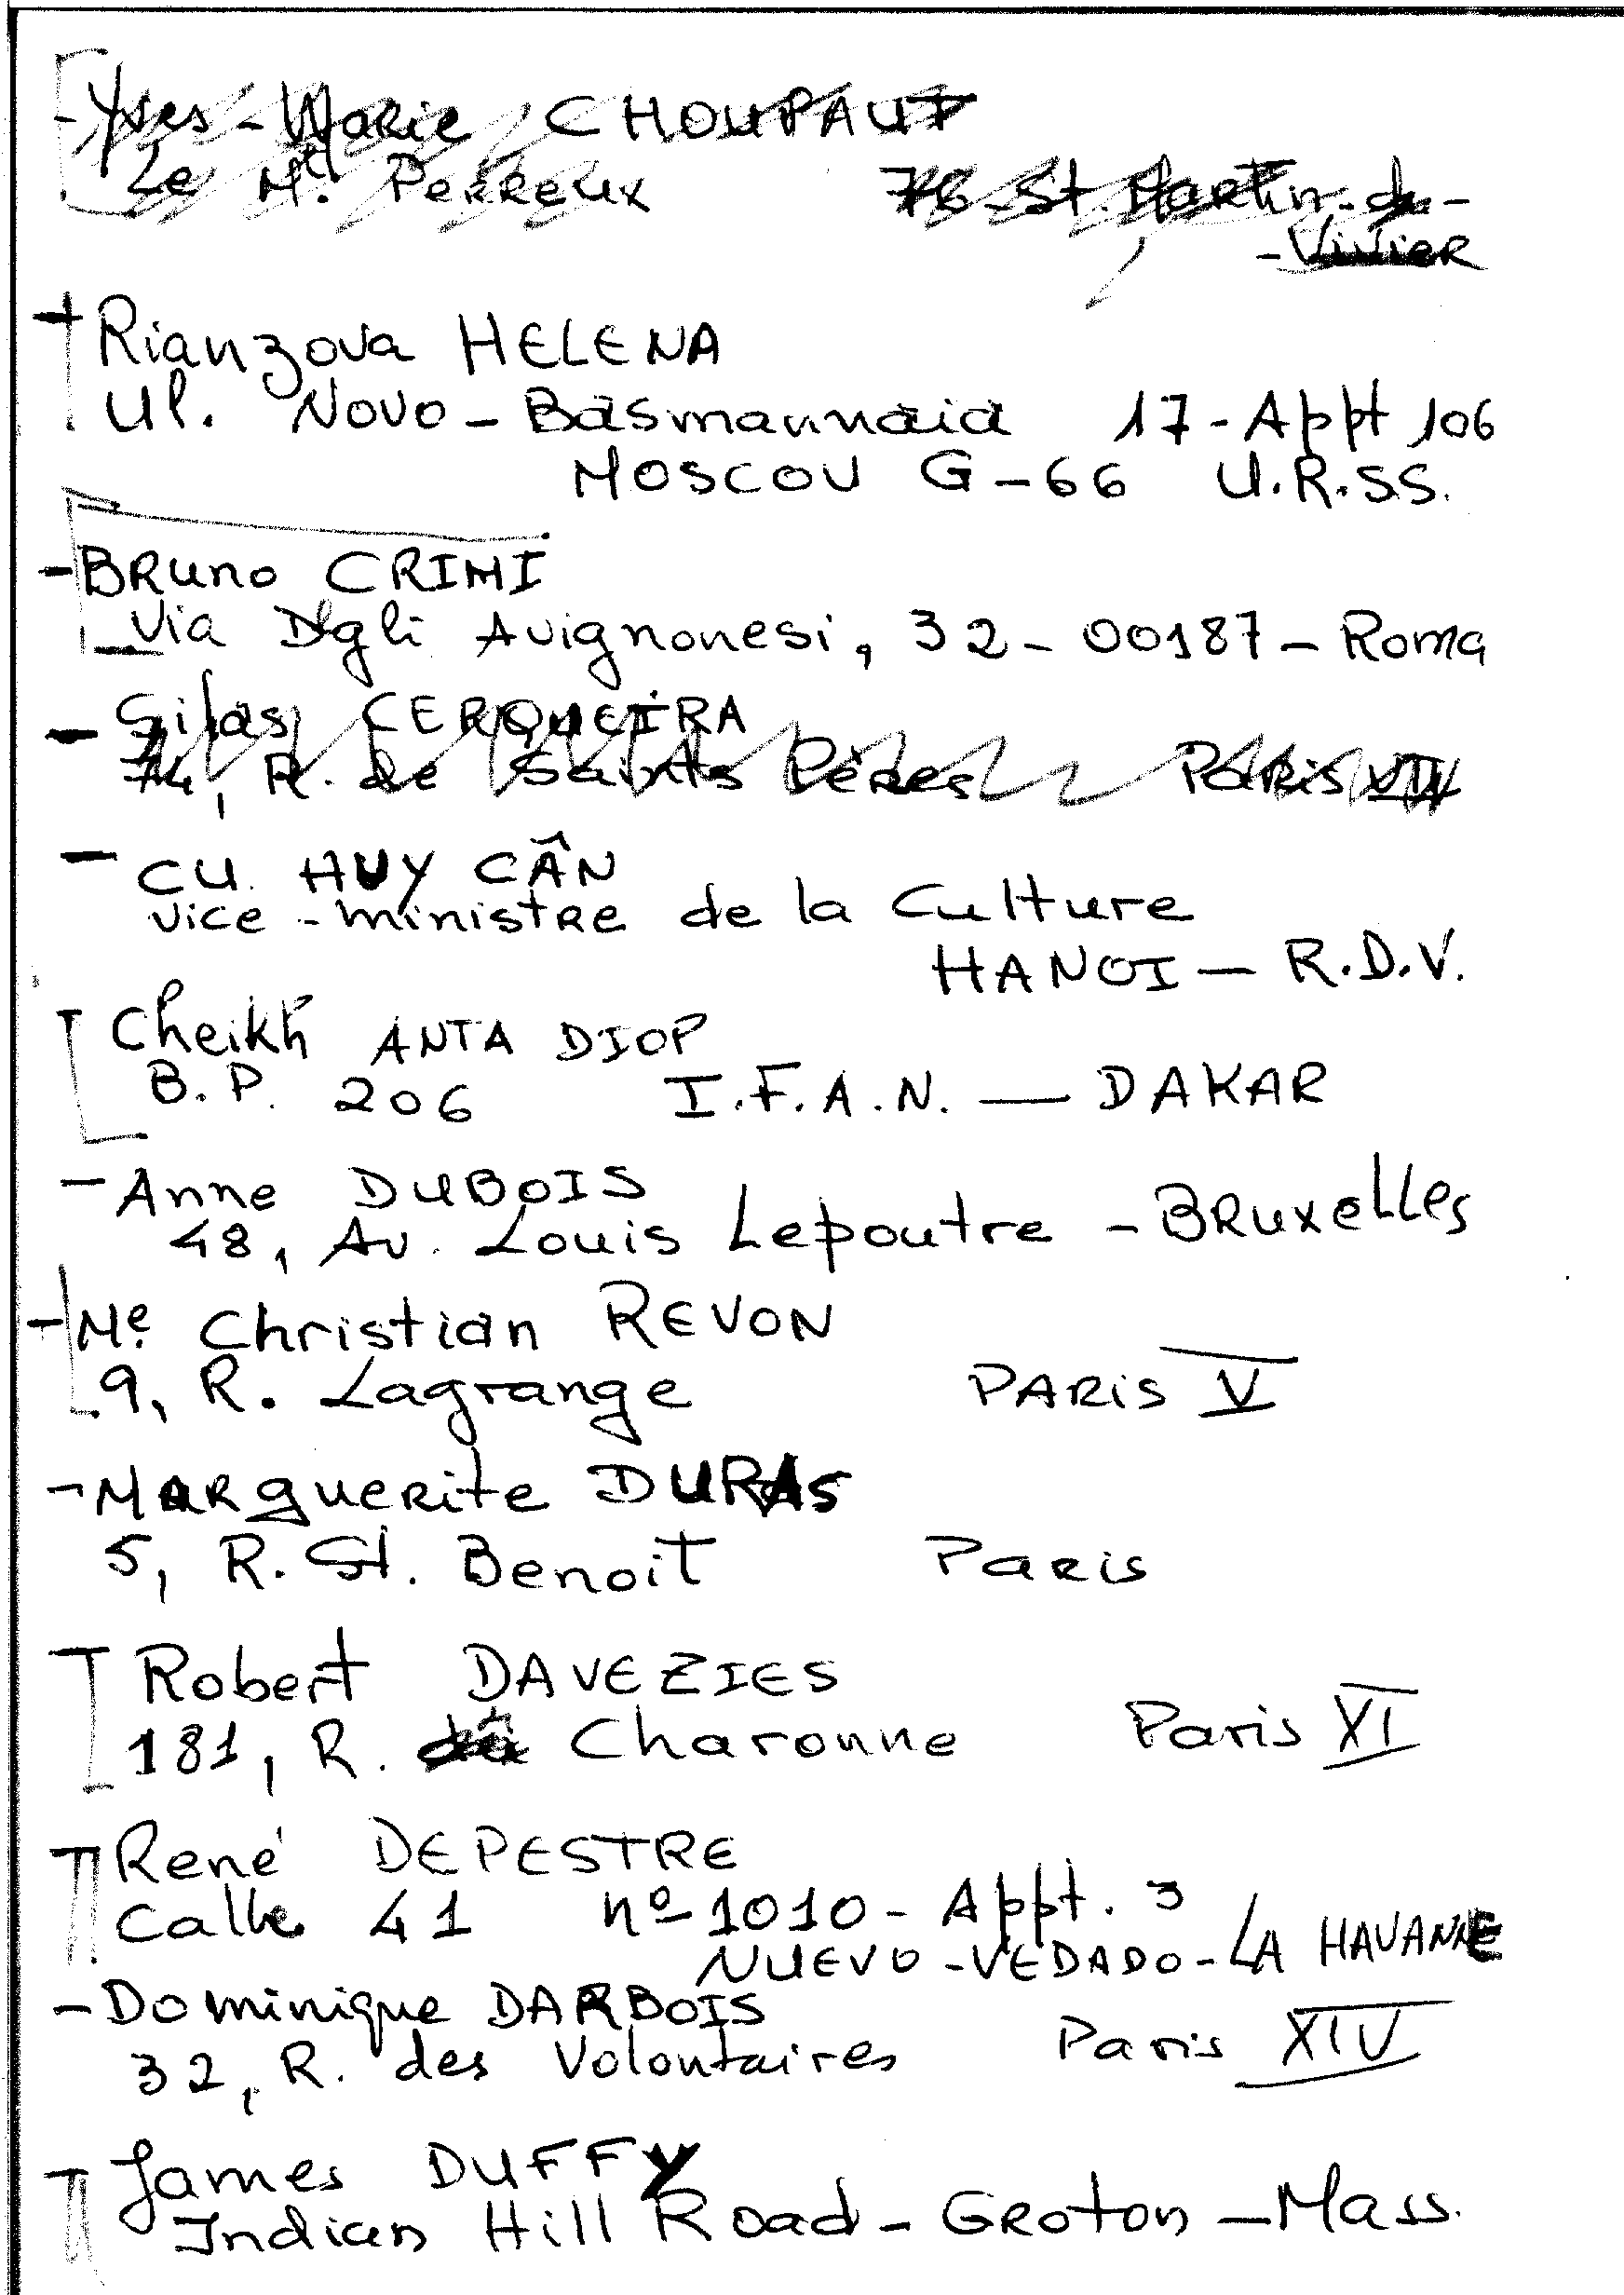 - Yves-Marie CHOUPAUT
Le Mt. Perreux 76-St. Martin-du-
-Vivier
Rianzova HELENA
Ul. Novo-Basmannaia 17-Appt 106
MOSCOU G-66 U.R.S.S.
- Bruno CRIMI
Via Degli Avignonesi, 32-00187-Roma
- Silas CERQUEIRA
74, R. de Saints Pères Paris VII
- CU HUY CÂN
Vice-ministre de la Culture
HANOI - R.D.V.
Cheikh ANTA DIOP
B.P. 206 I.F.A.N. — DAKAR
- Anne DUBOIS
48, Av. Louis Lepoutre - BRUXELLES
- Me. Christian REVON
9, R. Lagrange PARIS V
- Marguerite DURAS
5, R. St. Benoit Paris
Robert DAVEZIES
181, R. de Charonne Paris XI
René DEPESTRE
Calle 41 nº 1010 - Appt. 3
NUEVO-VEDADO-LA HAVANNE
- Dominique DARBOIS
32, R. des Volontaires Paris XIV
James DUFFY
Indian Hill Road - Groton - Mass.